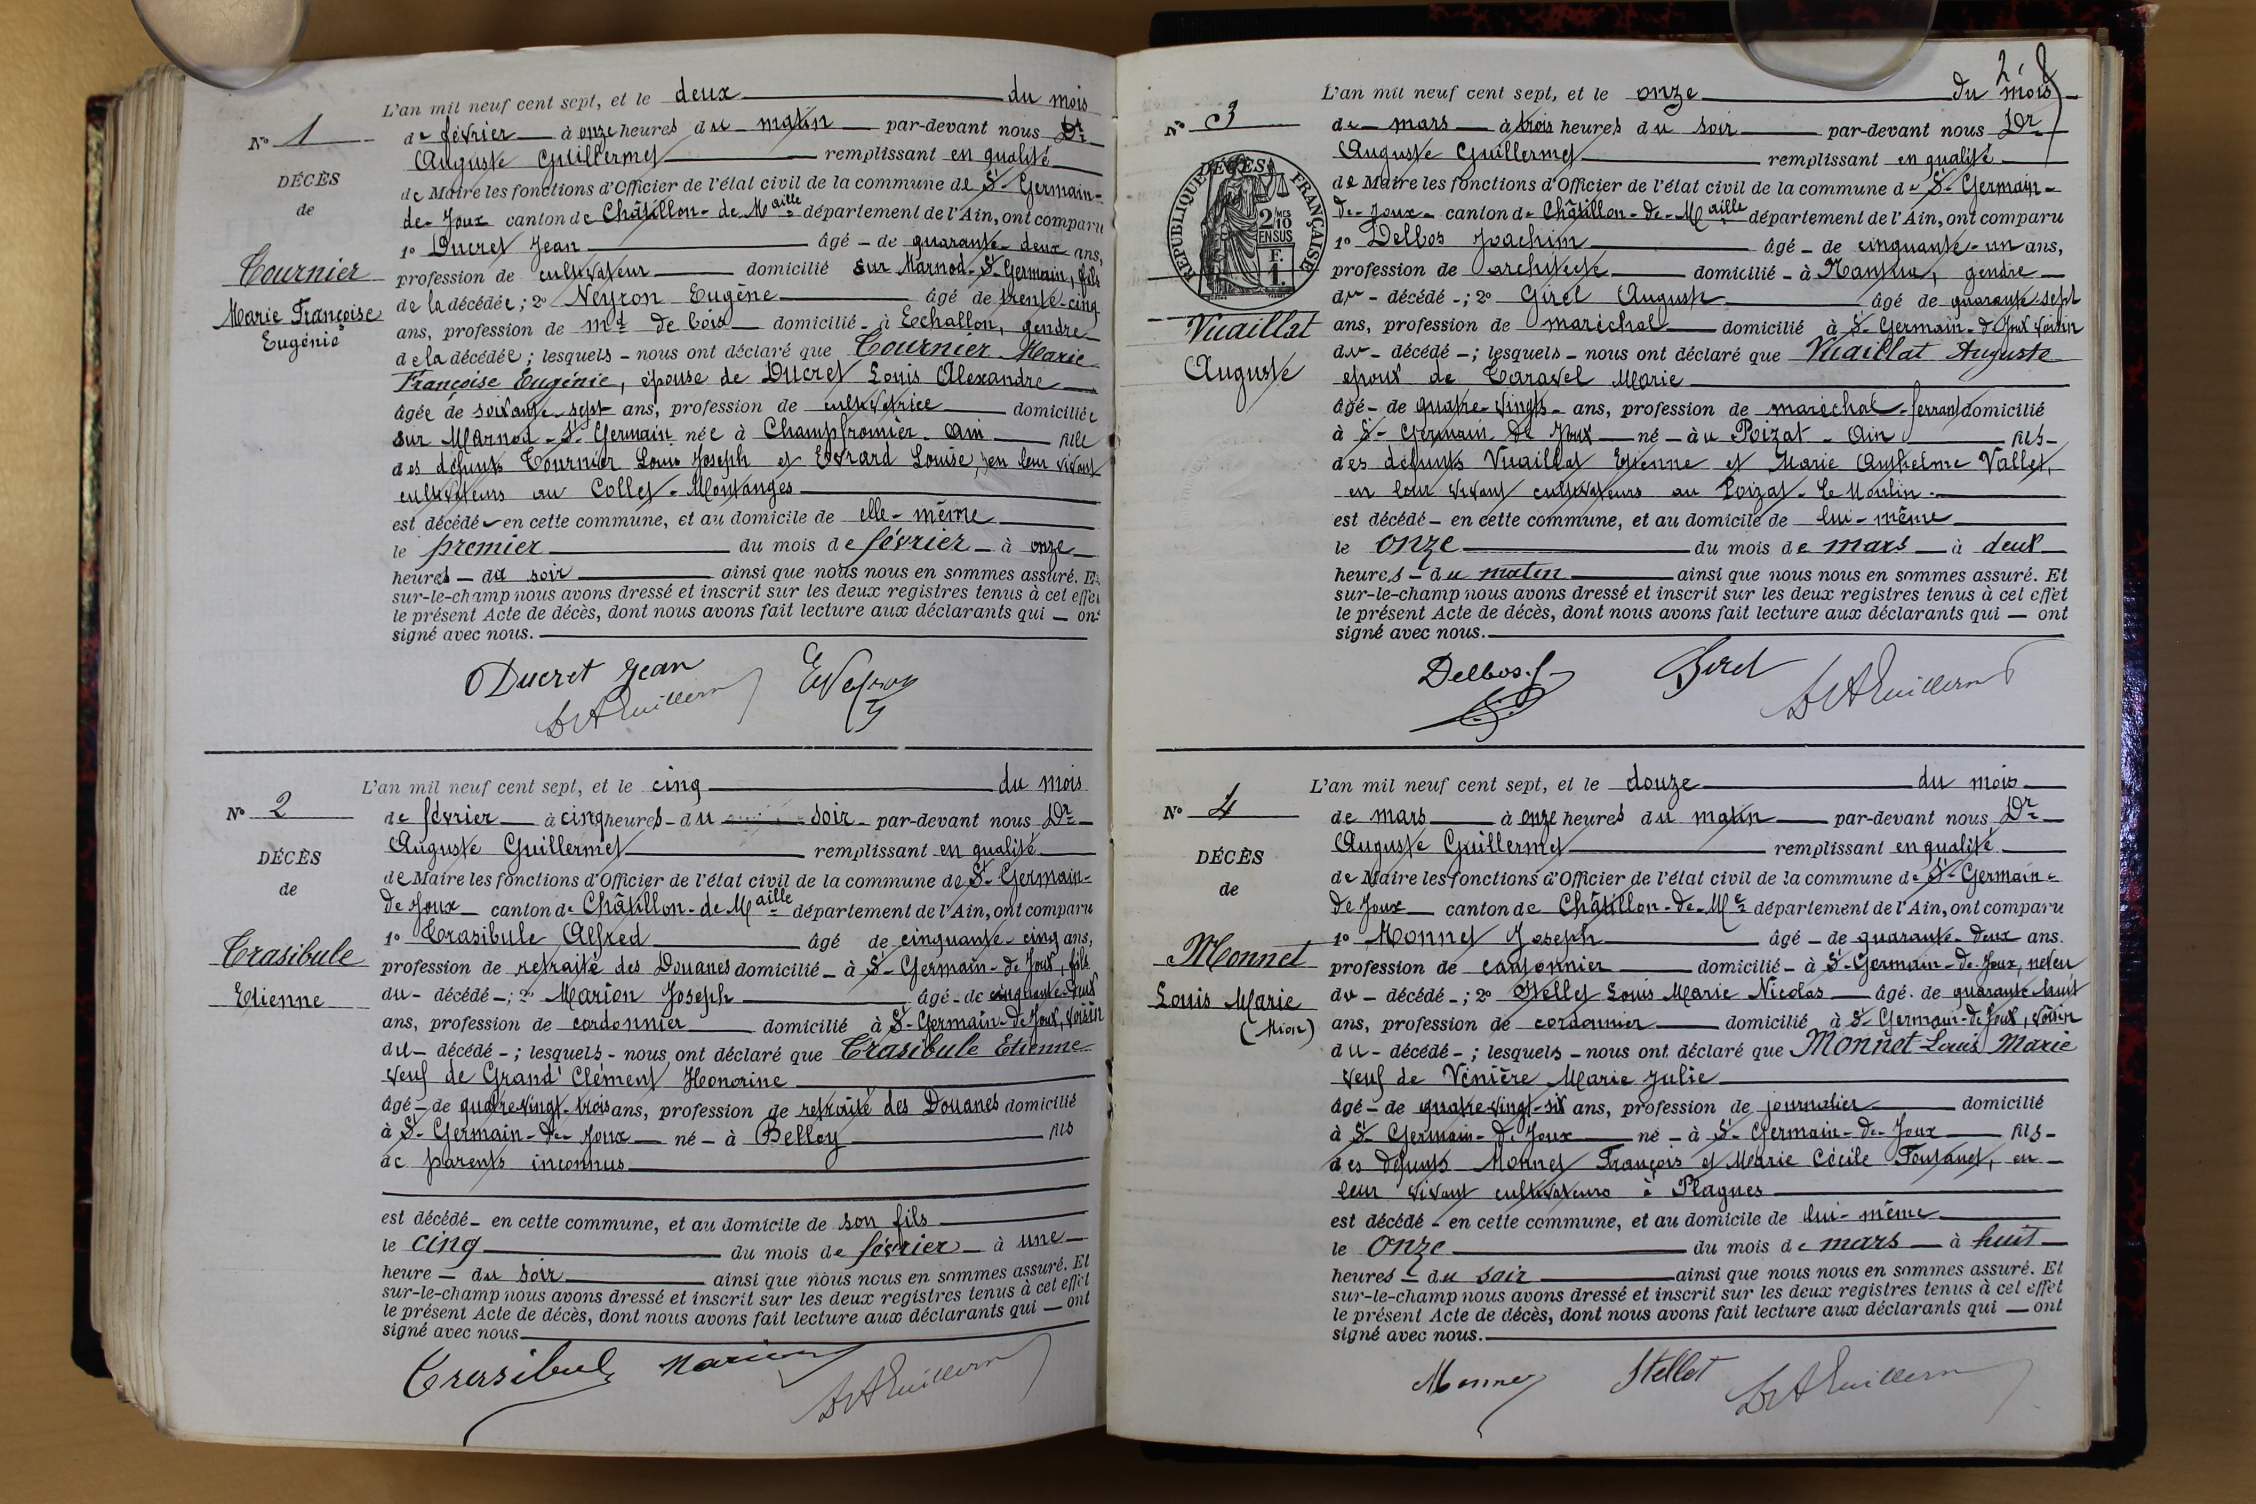 L'an mil neuf cent sept, et le deux du mois
N° 1
de février à onze heures du matin par-devant nous Dr
Auguste Guillermet remplissant en qualité
DÉCÈS
de Maire les fonctions d'Officier de l'état civil de la commune de St-Germain-
de
de-Joux canton de Châtillon-de-Maille département de l'Ain, ont comparu
1° Ducret Jean âgé de quarante-deux ans,
Tournier
profession de cultivateur domicilié sur Marnod-St-Germain, fils
Marie Françoise
de la décédée; 2° Neyron Eugène âgé de trente-cinq
Eugénie
ans, profession de md de bois domicilié à Echallon, gendre
de la décédée; lesquels nous ont déclaré que Tournier Marie
Françoise Eugénie, épouse de Ducret Louis Alexandre
âgée de soixante-sept ans, profession de cultivatrice domiciliée
sur Marnod-St-Germain née à Champfromier-Ain fille
des défunts Tournier Louis Joseph et Evrard Louise, en leur vivant
cultivateurs au Collet-Montanges
est décédé en cette commune, et au domicile de elle-même
le premier du mois de février à onze
heures du soir ainsi que nous nous en sommes assuré. Et
sur-le-champ nous avons dressé et inscrit sur les deux registres tenus à cet effet
le présent Acte de décès, dont nous avons fait lecture aux déclarants qui ont
signé avec nous.
Ducret Jean
E Neyron
Dr A Guillermet
L'an mil neuf cent sept, et le cinq du mois
N° 2
de février à cinq heures du soir par-devant nous Dr
Auguste Guillermet remplissant en qualité
DÉCÈS
de Maire les fonctions d'Officier de l'état civil de la commune de St-Germain-
de
de Joux canton de Châtillon-de-Maille département de l'Ain, ont comparu
1° Trasibule Alfred âgé de cinquante-cinq ans,
Trasibule
profession de retraité des Douanes domicilié à St-Germain-de Joux, fils
Etienne
du décédé; 2° Marion Joseph âgé de cinquante-deux
ans, profession de cordonnier domicilié à St-Germain-de Joux, voisin
du décédé; lesquels nous ont déclaré que Trasibule Etienne
veuf de Grand'Clément Honorine
âgé de quatre-vingt-trois ans, profession de retraité des Douanes domicilié
à St-Germain-de-Joux né à Belley fils
de parents inconnus
est décédé en cette commune, et au domicile de son fils
le cinq du mois de février à une
heure du soir ainsi que nous nous en sommes assuré. Et
sur-le-champ nous avons dressé et inscrit sur les deux registres tenus à cet effet
le présent Acte de décès, dont nous avons fait lecture aux déclarants qui ont
signé avec nous
Trasibule Marion
Dr A Guillermet
2
L'an mil neuf cent sept, et le onze du mois
N° 3
de mars à trois heures du soir par-devant nous Dr
Auguste Guillermet remplissant en qualité
DÉCÈS
RÉPUBLIQUE FRANÇAISE
2/10 MES EN SUS
1 F.
de Maire les fonctions d'Officier de l'état civil de la commune de St-Germain-
de-Joux canton de Châtillon-de-Maille département de l'Ain, ont comparu
1° Delbos Joachim âgé de cinquante-un ans,
profession de architecte domicilié à Nantua, gendre
du décédé; 2° Girel Auguste âgé de quarante-sept
Vuaillat
ans, profession de maréchal domicilié à St-Germain-de Joux voisin
du décédé; lesquels nous ont déclaré que Vuaillat Auguste
Auguste
époux de Taravel Marie
âgé de quatre-vingts ans, profession de maréchal-ferrant domicilié
à St-Germain de Joux né au Poizat-Ain fils
des défunts Vuaillat Etienne et Marie Anthelme Vallet,
en leur vivant cultivateurs au Poizat-le Moulin.
est décédé en cette commune, et au domicile de lui-même
le onze du mois de mars à deux
heures du matin ainsi que nous nous en sommes assuré. Et
sur-le-champ nous avons dressé et inscrit sur les deux registres tenus à cet effet
le présent Acte de décès, dont nous avons fait lecture aux déclarants qui ont
signé avec nous.
Delbos.J Girel
Dr A Guillermet
L'an mil neuf cent sept, et le douze du mois
N° 4
de mars à onze heures du matin par-devant nous Dr
Auguste Guillermet remplissant en qualité
DÉCÈS
de Maire les fonctions d'Officier de l'état civil de la commune de St-Germain-
de
de Joux canton de Châtillon-de-Me département de l'Ain, ont comparu
1° Monnet Joseph âgé de quarante-deux ans.
Monnet
profession de cantonnier domicilié à St-Germain-de-Joux, neveu
Louis Marie
du décédé; 2° Stellet Louis Marie Nicolas âgé de quarante-huit
(Mion)
ans, profession de cordonnier domicilié à St-Germain-de Joux, voisin
du décédé; lesquels nous ont déclaré que Monnet Louis Marie
veuf de Vénière Marie Julie
âgé de quatre-vingt-six ans, profession de journalier domicilié
à St-Germain-de Joux né à St-Germain-de-Joux fils
des défunts Monnet François et Marie Cécile Fontanet, en
leur vivant cultivateurs à Plagnes
est décédé en cette commune, et au domicile de lui-même
le onze du mois de mars à huit
heures du soir ainsi que nous nous en sommes assuré. Et
sur-le-champ nous avons dressé et inscrit sur les deux registres tenus à cet effet
le présent Acte de décès, dont nous avons fait lecture aux déclarants qui ont
signé avec nous.
Monnet Stellet Dr A Guillermet